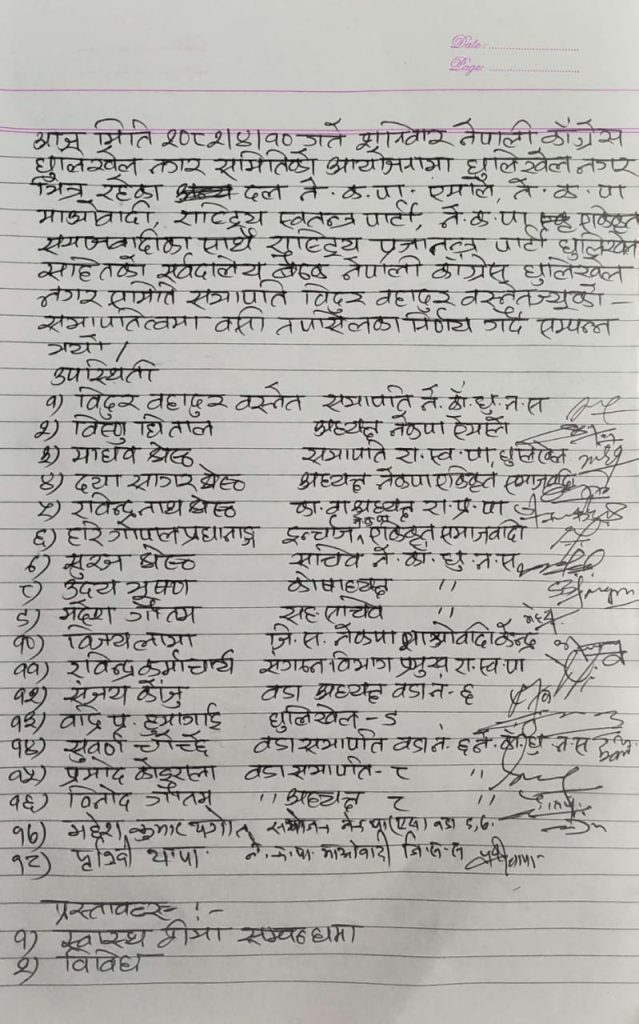 Date:
Page:
आज मिति २०८२।४।१० गते शुक्रिवार नेपाली काँग्रेस
धुलिखेल नगर समितिको आयोजनामा धुलिखेल नगर
भित्र रहेका दल ने. क. पा. एमाले, ने. क. पा
माओवादी, राष्ट्रिय स्वतन्त्र पार्टी, ने. क. पा एकिकृत
समाजवादीका साथै राष्ट्रिय प्रजातन्त्र पार्टी धुलिखेल
सहितको सर्वदलिय बैठक नेपाली काँग्रेस धुलिखेल
नगर समिति सभापति विदुर वहादुर वस्नेतज्यूको –
सभापतित्वमा वसी तपसिलका निर्णय गर्दै सम्पन्न
गर्यो /
उपस्थिती
१) विदुर वहादुर वस्नेत सभापति ने. काँ. धु. न. स
२) विष्णु धिताल अध्यक्ष नेकपा एमाले
३) माधव श्रेष्ठ सभापति रा. स्व. पा. धुलिखेल
४) दया सागर श्रेष्ठ अध्यक्ष नेकपा एकिकृत समाजवादी
५) रविन्द्र नाथ श्रेष्ठ का. वा अध्यक्ष रा. प्र. पा
६) हरि गोपाल प्रधानाङ्ग इन्चार्ज नेकपा एकिकृत समाजवादी
७) सुरज श्रेष्ठ सचिव ने. काँ. धु. न. स.
८) उदय भूषण कोषाध्यक्ष ''
९) महेश गौतम सह-सचिव ''
१०) विजय लामा जि. स. नेकपा माओवादि केन्द्र
११) रविन्द्र कर्माचार्य संगठन विभाग प्रमुख रा. स्व. पा
१२) संजय कोजु वडा अध्यक्ष वडा नं. ६
१३) वद्रि प्र. हुमागाई धुलिखेल – ९
१४) सुवर्ण वडा सभापति वडा नं. ६ ने. काँ. धु. न. स
१५) प्रमोद कोइराला वडा सभापति – ८ ''
१६) विनोद गौतम '' अध्यक्ष ८ ''
१७) महेश कुमार
१८) पृथ्वी थापा ने. क. पा. माओवादी जि. स. स
प्रस्तावहरु :–
१) स्वास्थ वीमा सम्वन्धमा
२) विविध